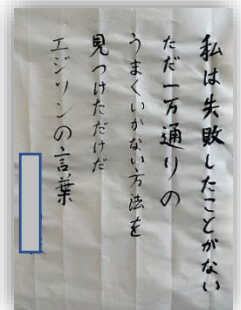 私は失敗したことがない
ただ一万通りの
うまくいかない方法を
見つけただけだ
エジソンの言葉